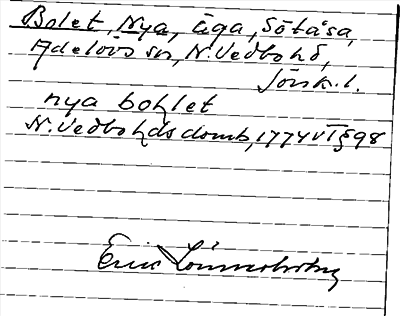 Bolet, Nya, äga, Sötåsa,
Adelövs sn, N. Vedbo hd,
Jönk. l.
nya bohlet
N. Vedbo hds domb, 1774 VT § 98
Eric